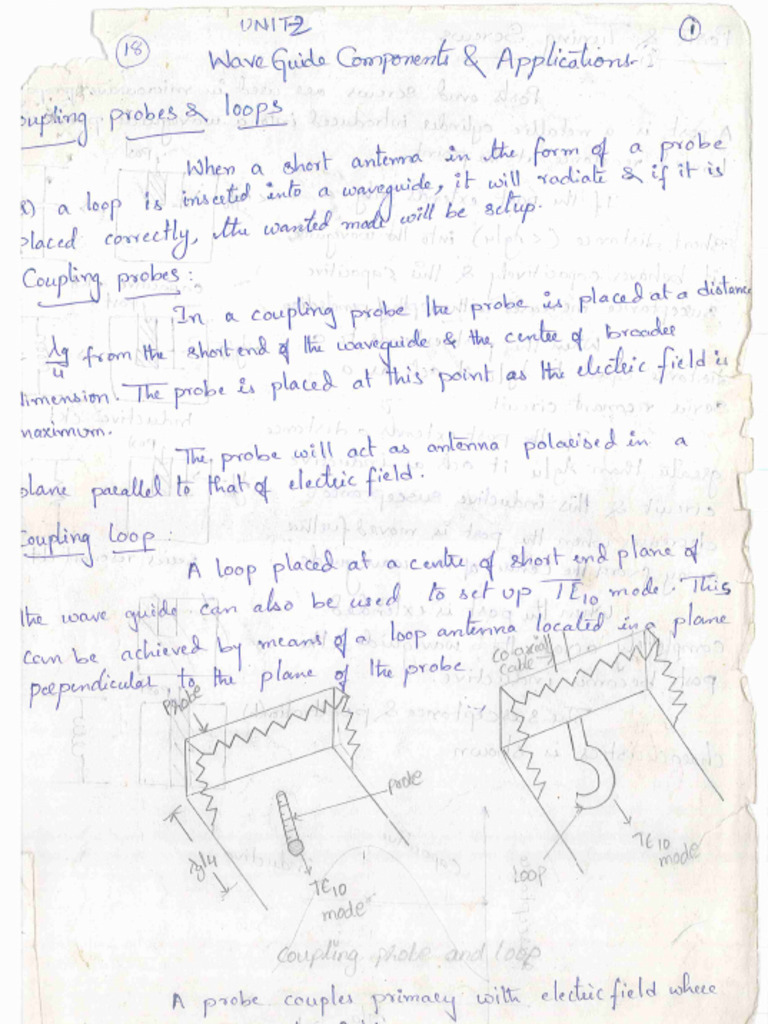 UNIT-2
①
⑱
Wave Guide Components & Applications
oupling probes & loops
When a short antenna in the form of a probe
r) a loop is inserted into a waveguide, it will radiate & if it is
placed correctly, the wanted mode will be setup.
Coupling probes :
In a coupling probe the probe is placed at a distance
λg/4 from the short end of the waveguide & the centre of broader
dimension. The probe is placed at this point as the electric field is
maximum.
The probe will act as antenna polarised in a
plane parallel to that of electric field.
Coupling loop :
A loop placed at a centre of short end plane of
the wave guide can also be used to set up TE10 mode. This
can be achieved by means of a loop antenna located in a plane
perpendicular to the plane of the probe.
Probe
Co-axial
cable
probe
λg/4
TE10
mode
Loop
TE10
mode
Coupling probe and loop
A probe couples primary with electric field where